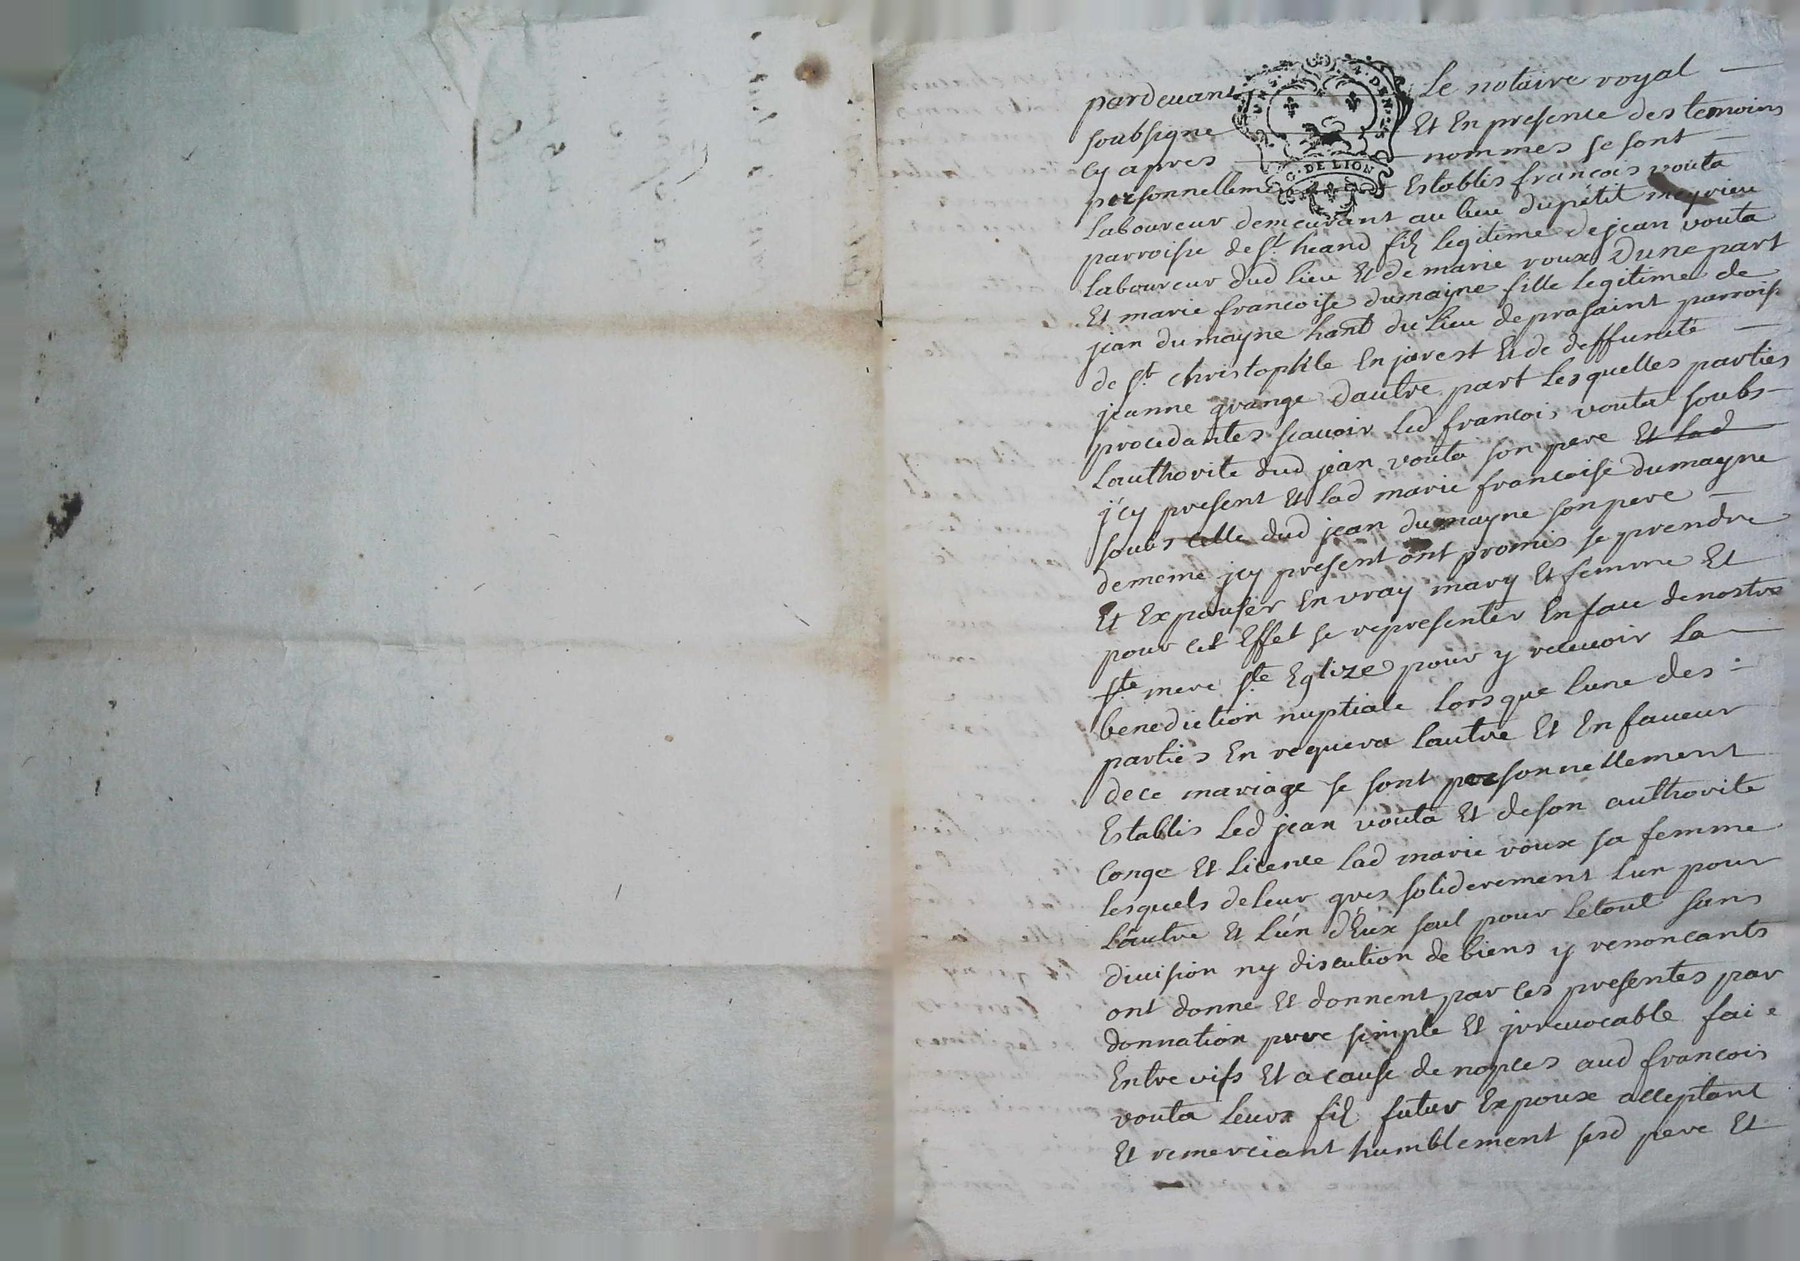 pardevant Le notaire royal
soubsigne Et En presence des temoins
cy apres nommes se sont
personnellement Establis francois vouta
Laboureur demeurant au lieu du petit meyrieu
parroisse de St heand fils legitime de jean vouta
Laboureur dud lieu Et de marie roux Dune part
Et marie francoise dumayne fille legitime de
jean dumayne hant du lieu de prasaint parrois.
de St christophle En jarest Et de deffunte
jeanne grange dautre part Lesquelles parties
procedantes scauoir led francois vouta soubs
Lauthorite dud jean vouta son pere Et lad
j'cy present Et lad marie francoise dumayne
soubs celle dud jean dumayne son pere
de meme jcy present ont promis se prendre
Et Expouser En vray mary Et femme Et
pour cet Effet se representer En face de nostre
ste mere ste Eglize pour y receuoir La
benediction nuptiale lors que lune des
parties En requera lautre Et En faueur
de ce mariage se sont personnellement
Establis Led jean vouta Et de son authorite
Conge Et licence lad marie roux sa femme
lesquels de leur gres soliderement l'un pour
Lautre Et L'un d'Eux seul pour le tout sans
diuision ny discution de biens y renoncants
ont donne Et donnent par ces presentes par
donnation pure simple Et jrreuocable faite
Entre vifs Et a cause de nopces aud francois
vouta leurs fils futur Expoux acceptant
Et remerciant humblement sesd pere Et